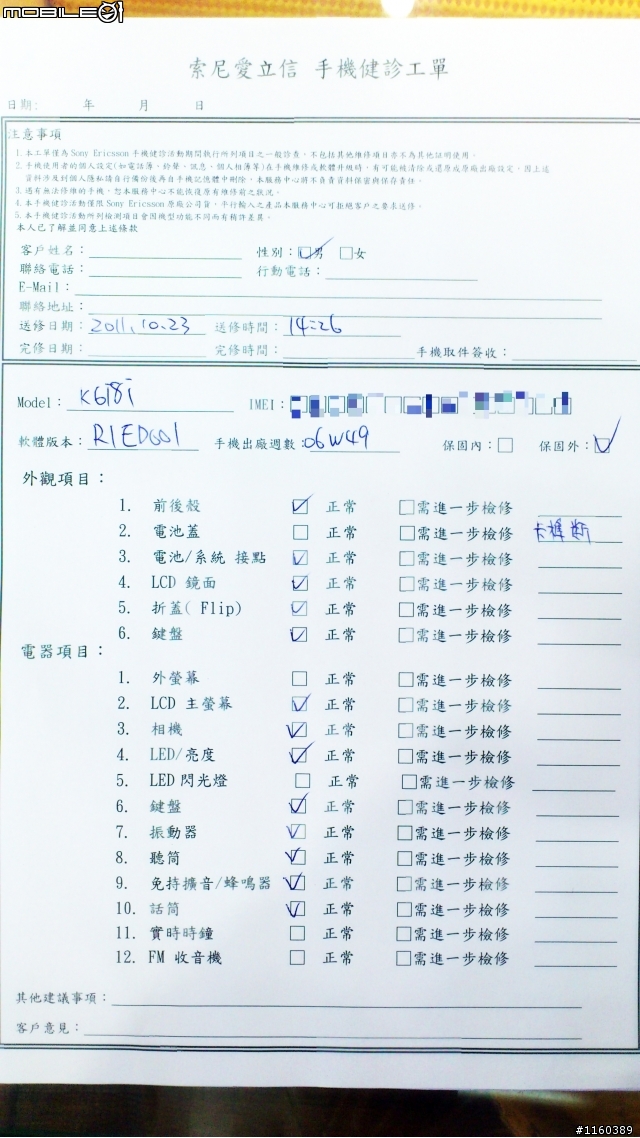 MOBILE01
索尼愛立信 手機健診工單
日期: 年 月 日
注意事項
1. 本工單僅為 Sony Ericsson 手機健診活動期間執行所列項目之一般診查，不包括其他維修項目亦不為其他證明使用。
2. 手機使用者的個人設定(如電話簿、鈴聲、訊息、個人相簿等)在手機維修或軟體升級時，有可能被清除或還原成原廠出廠設定，因上述
資料涉及到個人隱私請自行備份後再自手機記憶體中刪除，本服務中心將不負責資料保密與保存責任。
3. 遇有無法修維的手機，恕本服務中心不能恢復原有維修前之狀況。
4. 本手機健診活動僅限 Sony Ericsson 原廠公司貨，平行輸入之產品本服務中心可拒絕客戶之要求送修。
5. 本手機健診活動所檢測項目會因機型功能不同而有稍許差異。
本人已了解並同意上述條款
客戶姓名： 性別：□男 □女
聯絡電話： 行動電話：
E-Mail：
聯絡地址：
送修日期：2011.10.23 送修時間：14:26
完修日期： 完修時間： 手機取件簽收：
Model： K618i IMEI：
軟體版本：R1ED001 手機出廠週數：06W49 保固內：□ 保固外：□
外觀項目：
1. 前後殼 □ 正常 □需進一步檢修
2. 電池蓋 □ 正常 □需進一步檢修 卡榫斷
3. 電池/系統 接點 □ 正常 □需進一步檢修
4. LCD 鏡面 □ 正常 □需進一步檢修
5. 折蓋( Flip) □ 正常 □需進一步檢修
6. 鍵盤 □ 正常 □需進一步檢修
電器項目：
1. 外螢幕 □ 正常 □需進一步檢修
2. LCD 主螢幕 □ 正常 □需進一步檢修
3. 相機 □ 正常 □需進一步檢修
4. LED/亮度 □ 正常 □需進一步檢修
5. LED 閃光燈 □ 正常 □需進一步檢修
6. 鍵盤 □ 正常 □需進一步檢修
7. 振動器 □ 正常 □需進一步檢修
8. 聽筒 □ 正常 □需進一步檢修
9. 免持擴音/蜂鳴器 □ 正常 □需進一步檢修
10. 話筒 □ 正常 □需進一步檢修
11. 實時時鐘 □ 正常 □需進一步檢修
12. FM 收音機 □ 正常 □需進一步檢修
其他建議事項：
客戶意見：
#1160389